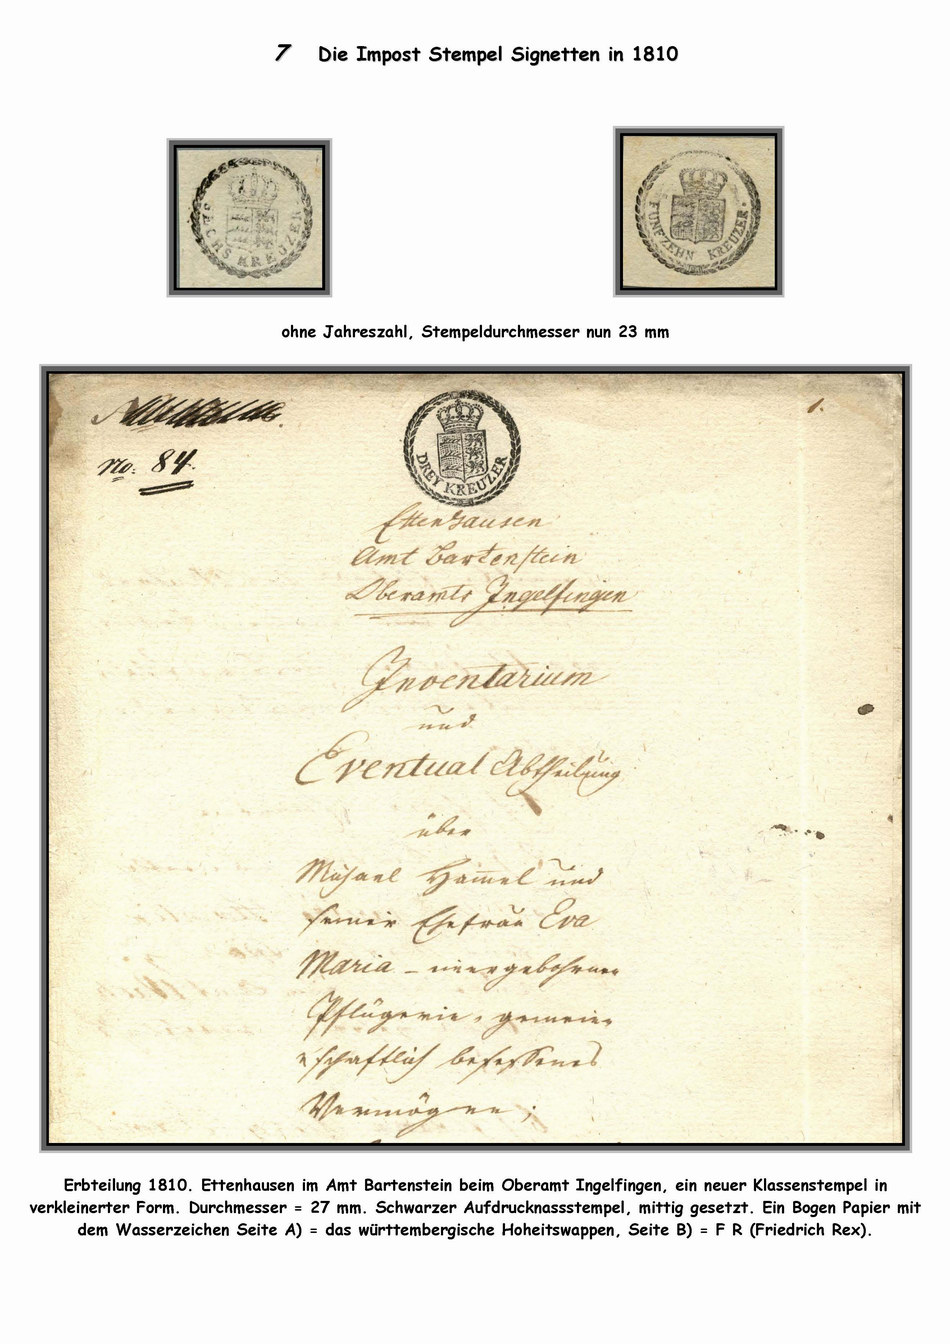 7 Die Impost Stempel Signetten in 1810
SECHS KREUZER
FÜNFZEHN KREUZER.
ohne Jahreszahl, Stempeldurchmesser nun 23 mm
1.
No: 84.
DREY KREUZER
Ettenhausen
Amt Bartenstein
Oberamts Ingelfingen
Inventarium
und
Eventual Abtheilung
über
Michael Hammel und
seiner Ehefrau Eva
Maria - einer gebohrnen
Pflügerin, gemein-
schaftlich besessenes
Vermögen;
Erbteilung 1810. Ettenhausen im Amt Bartenstein beim Oberamt Ingelfingen, ein neuer Klassenstempel in
verkleinerter Form. Durchmesser = 27 mm. Schwarzer Aufdrucknassstempel, mittig gesetzt. Ein Bogen Papier mit
dem Wasserzeichen Seite A) = das württembergische Hoheitswappen, Seite B) = F R (Friedrich Rex).